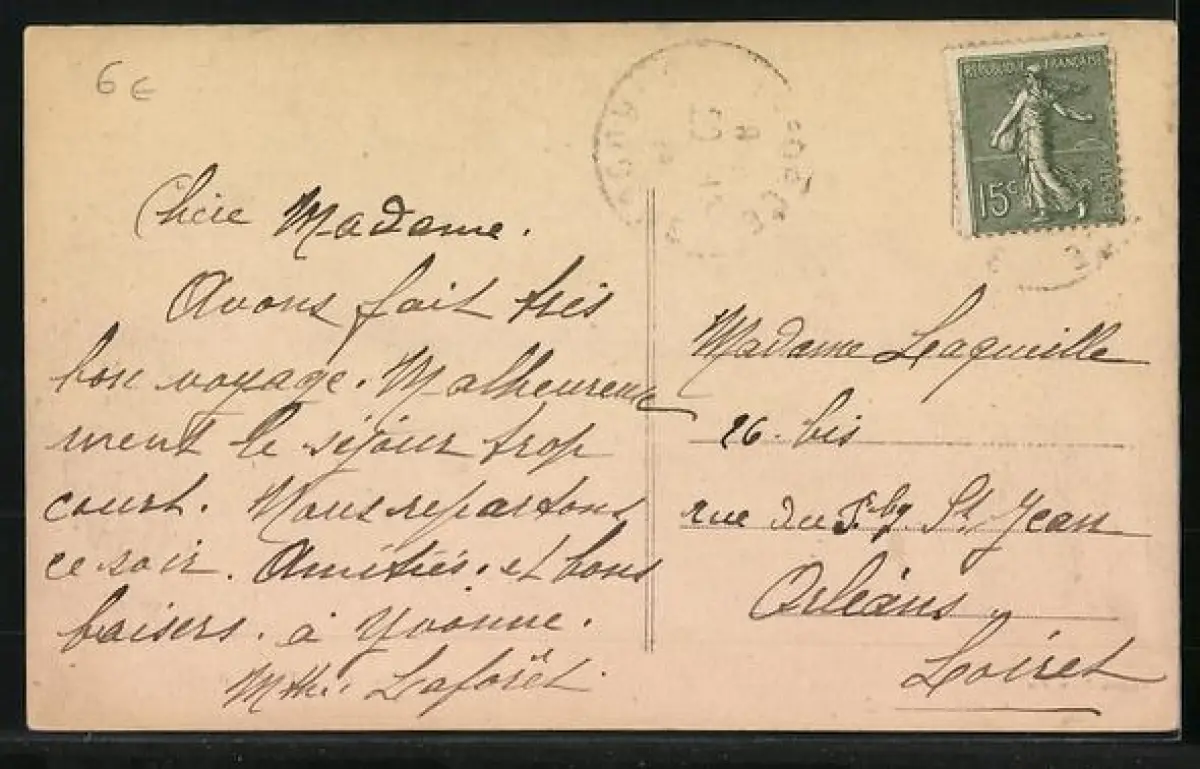 6 €
RÉPUBLIQUE FRANÇAISE
15c
Chère Madame.
Avons fait très
bon voyage. Malheureuse
ment le séjour trop
court. Nous repartons
ce soir. Amitiés. et bons
baisers. à Yvonne.
Mthe. Laforêt.
Madame Laqueille
26. bis
rue du Fbg. St. Jean
Orléans.
Loiret